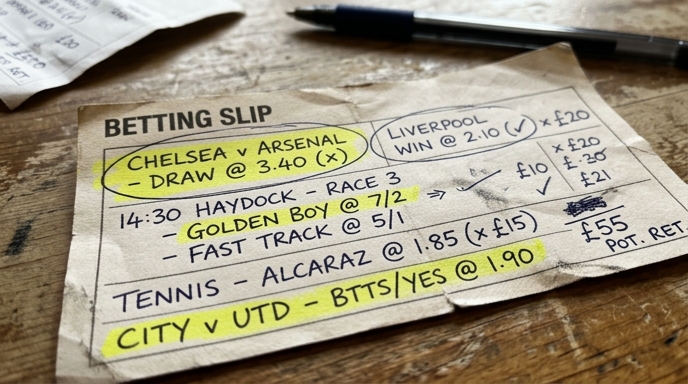 BETTING SLIP
CHELSEA v ARSENAL
– DRAW @ 3.40 (x)
LIVERPOOL
WIN @ 2.10 (✓) x £20
14:30 HAYDOCK – RACE 3
– GOLDEN BOY @ 7/2 ⇒ ✓ £10 ✓
– FAST TRACK @ 5/1
x £20
£.30
£21
TENNIS – ALCARAZ @ 1.85 (x £15)
£55
POT. RET.
CITY v UTD – BTTS/YES @ 1.90